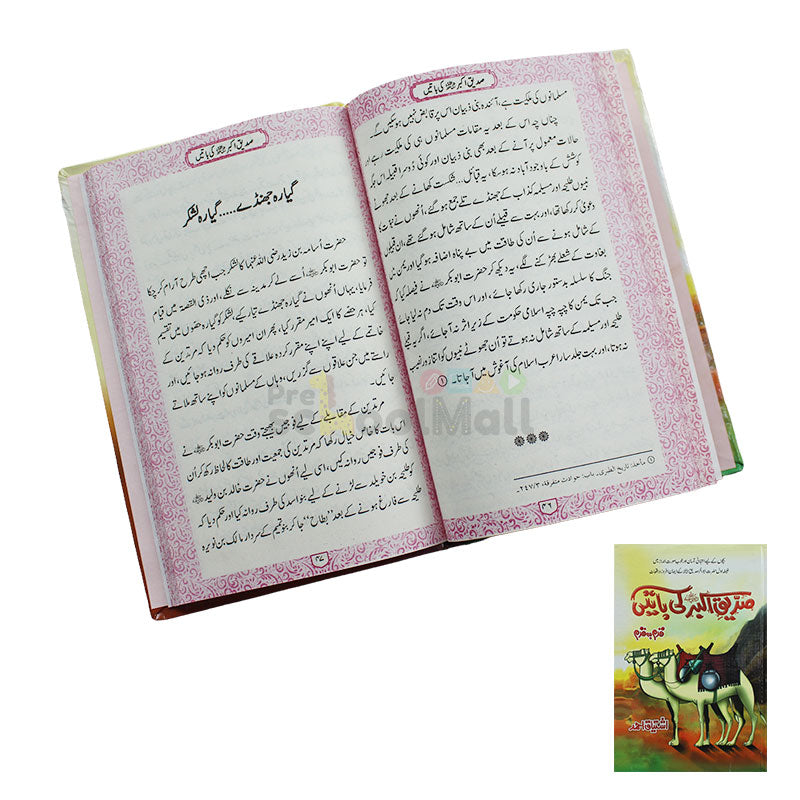 صدیق اکبر ﷜ کی باتیں
مسلمانوں کی ملکیت ہے، آئندہ بنی ذبیان اس پر قابض نہیں ہوسکیں گے۔
چناں چہ اس کے بعد یہ مقامات مسلمانوں ہی کی ملکیت رہے اور
حالات معمول پر آنے کے بعد بھی بنی ذبیان اور کوئی دوسرا قبیلہ اس جگہ
کوشش کے باوجود آباد نہ ہوسکا، یہ قبائل... شکست کھانے کے بعد جھوٹے
طلیحہ اور مسیلمہ کذاب کے جھنڈے تلے جمع ہوگئے، انھوں نے نبوت کا
دعویٰ کر رکھا تھا، اور بہت سے قبیلے اُن کے ساتھ شامل ہوگئے تھے، ان قبیلوں
کے شامل ہونے سے اُن کی طاقت میں بے پناہ اضافہ ہو گیا اور یمن میں
بغاوت کے شعلے بھڑکنے لگے، یہ دیکھ کر حضرت ابوبکر ﷜ نے فیصلہ کیا کہ
جنگ کا سلسلہ بدستور جاری رکھا جائے، اور اس وقت تک دم نہ لیا جائے
جب تک یمن کا چپہ چپہ اسلامی حکومت کے زیر اثر نہ آجائے، اگر یہ قبیلے
طلیحہ اور مسیلمہ کے ساتھ شامل نہ ہوتے تو اُن جھوٹے نبیوں کو اتنا زور نصیب
نہ ہوتا، اور بہت جلد سارا عرب اسلام کی آغوش میں آجاتا۔ ①
① ماخذ: تاریخ الطبری۔ باب: حوادث متفرقة: ٢٤٧/٣۔
٤٦
صدیق اکبر ﷜ کی باتیں
گیارہ جھنڈے..... گیارہ لشکر
حضرت اسامہ بن زید رضی اللہ عنہما کا لشکر جب اچھی طرح آرام کر چکا
تو حضرت ابوبکر ﷜ اُسے لے کر مدینہ سے نکلے، اور ذی القصہ میں قیام
فرمایا، یہاں انھوں نے گیارہ جھنڈے تیار کیے، لشکر کو گیارہ حصوں میں تقسیم
کیا، ہر حصے کا ایک امیر مقرر کیا، پھر ان امیروں کو حکم دیا کہ مرتدین کے
خاتمے کے لیے اپنے اپنے مقرر کردہ علاقے کی طرف روانہ ہو جائیں، اور
راستے میں جن علاقوں سے گزریں، وہاں کے مسلمانوں کو اپنے ساتھ ملاتے
جائیں۔
مرتدین کے مقابلے کے لیے فوجیں بھیجتے وقت حضرت ابوبکر ﷜ نے
اس بات کا خاص خیال رکھا کہ مرتدین کی جمعیت اور طاقت کا لحاظ رکھ کر ان
کی طرف فوجیں روانہ کیں، اسی لیے انھوں نے حضرت خالد بن ولید ﷜
کو طلیحہ بن خویلد سے لڑنے کے لیے بنو اسد کی طرف روانہ کیا اور حکم دیا کہ
طلیحہ سے فارغ ہونے کے بعد "بطاح" جا کر بنو تمیم کے سردار مالک بن نویرہ
٤٧
Pre
schoolMall
صدیق اکبر کی باتیں
قدم بہ قدم
اشتیاق احمد